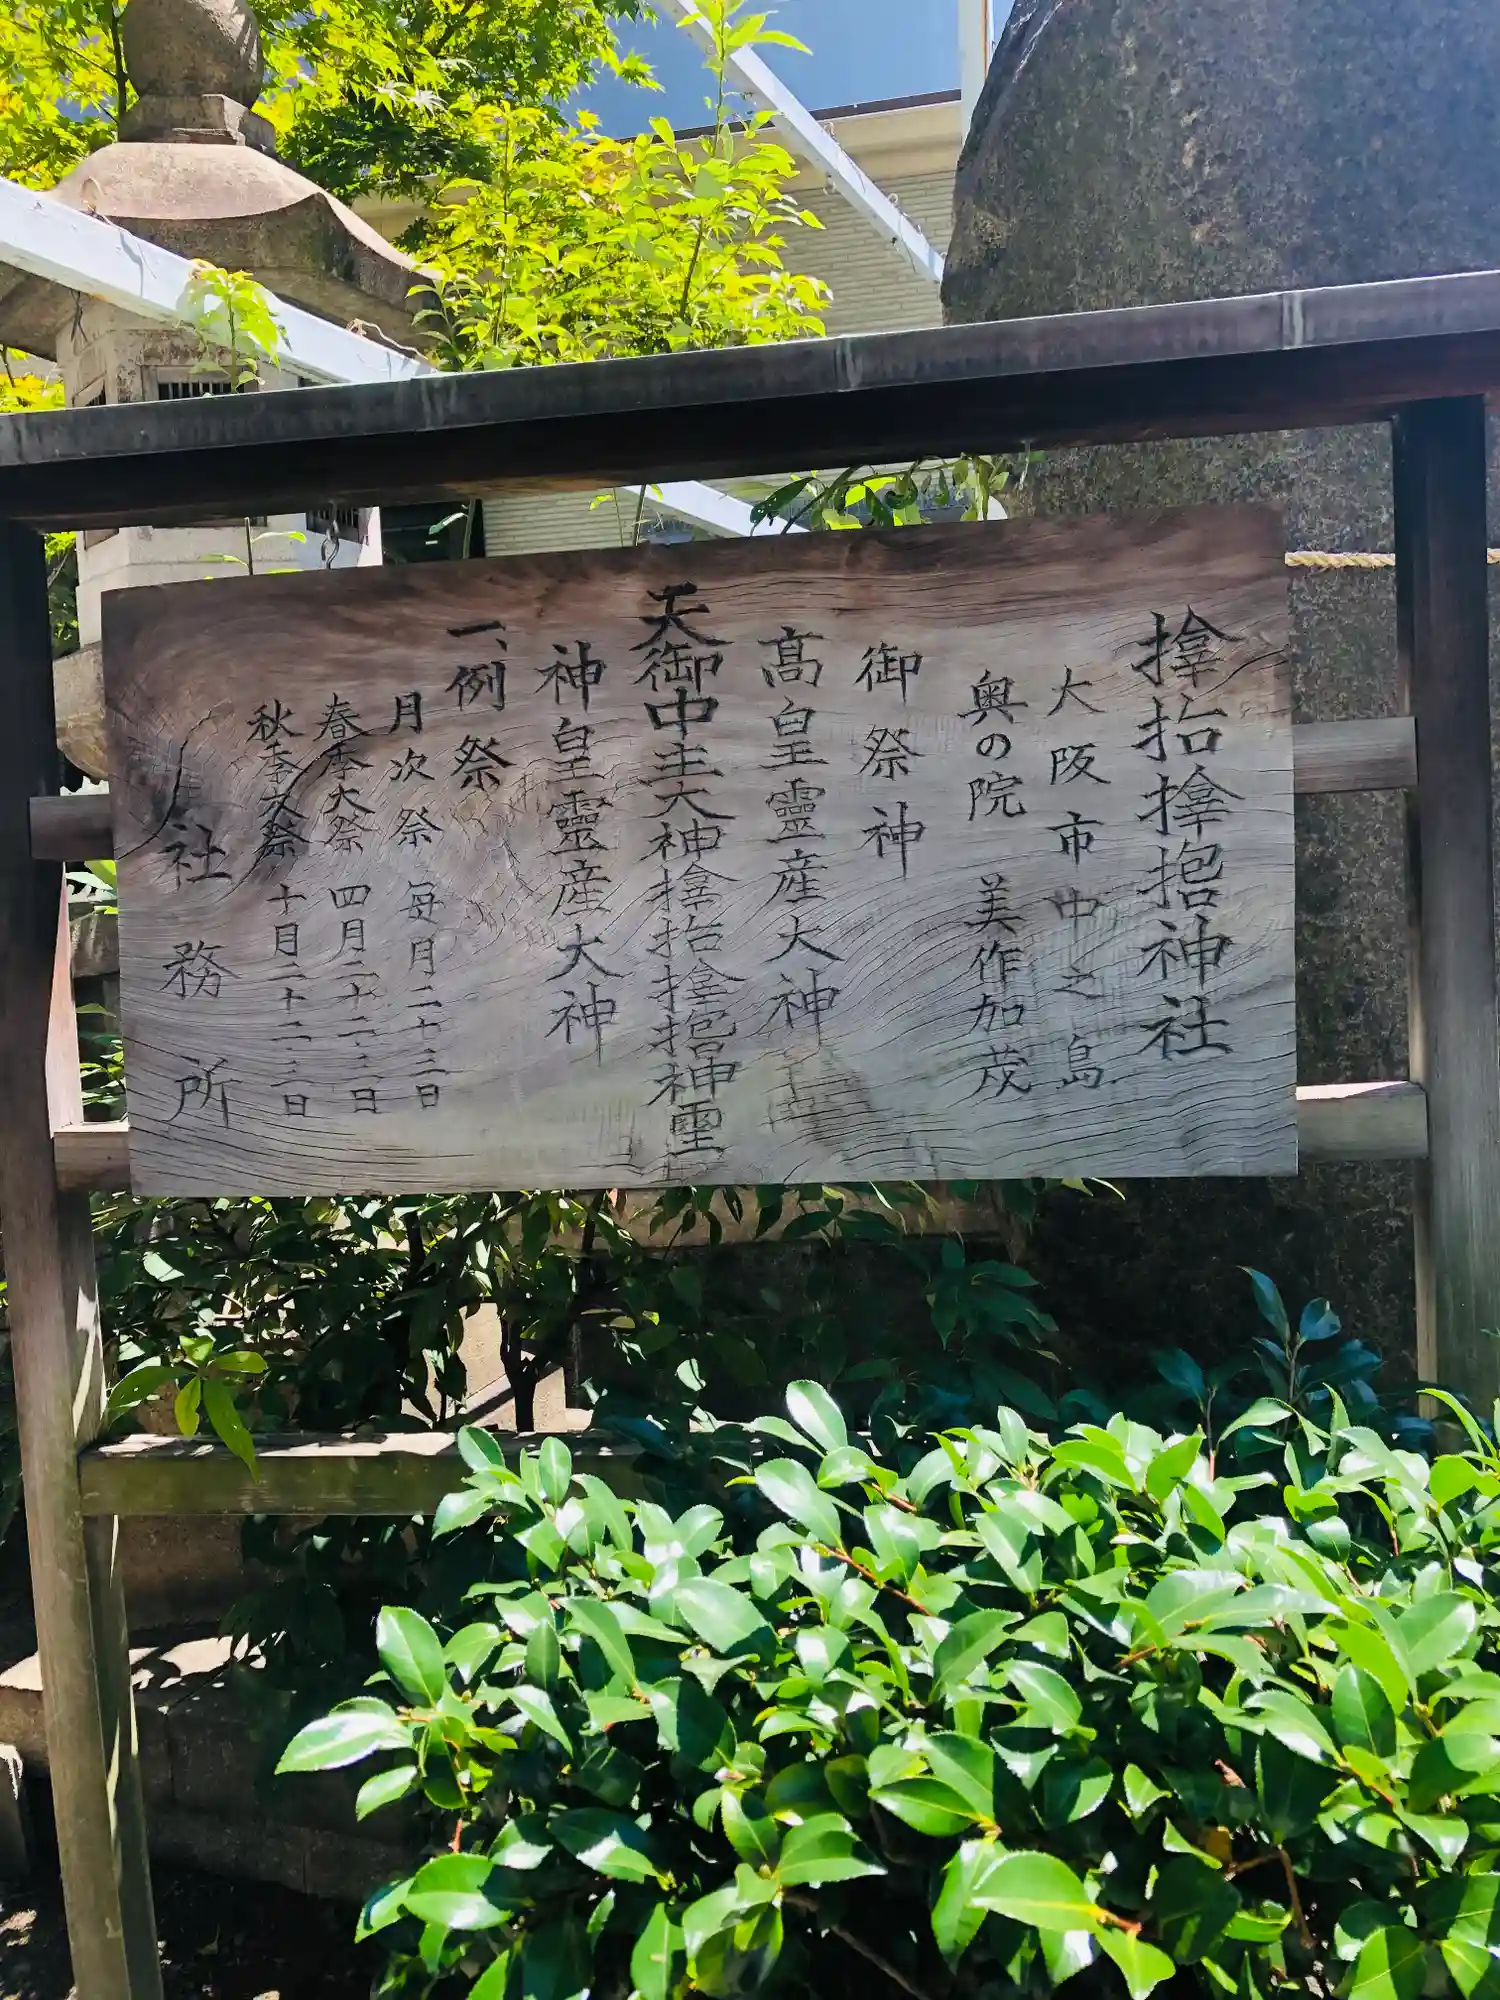 𪮷抬𪮷神社
大阪市中之島
奥の院 美作加茂
御祭神
髙皇靈産大神
天御中主大神𪮷抬𪮷神霊
神皇靈産大神
一、例祭
月次祭 毎月二十三日
春季大祭 四月二十二・三日
秋季大祭 十月二十二・三日
社務所